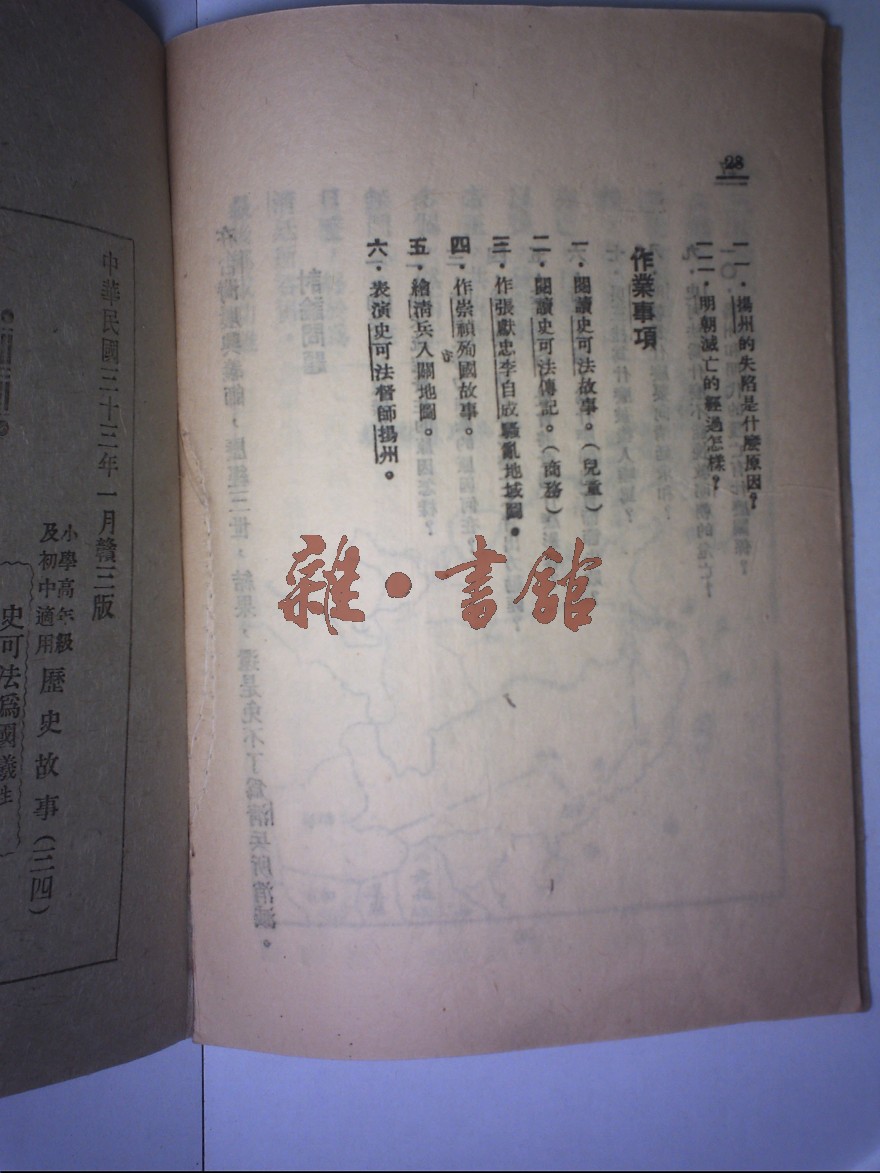 28
一一．揚州的失陷是什麼原因？
一二．明朝滅亡的經過怎樣？
作業事項
一．閱讀史可法故事。（兒童）
二．閱讀史可法傳記。（商務）
三．作張獻忠李自成騷亂地域圖。
四．作崇禎殉國故事。
五．繪淸兵入關地圖。
六．表演史可法督師揚州。
雜·書館
中華民國三十三年一月贛三版
小學高年級
及初中適用
歷史故事（二四）
史可法爲國犧牲